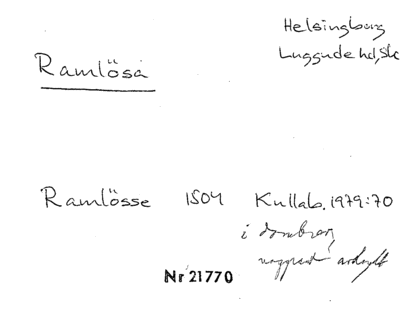 Helsingborg
Luggude hd, Sk
Ramlösa
Ramlösse 1504 Kullab. 1979:70
i dombrev,
avskrift
Nr 21770